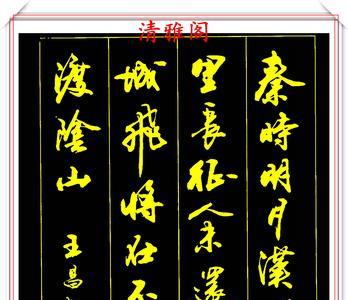 清雅阁
秦時明月漢
里長征人未還
城飛將在不
渡陰山
王昌